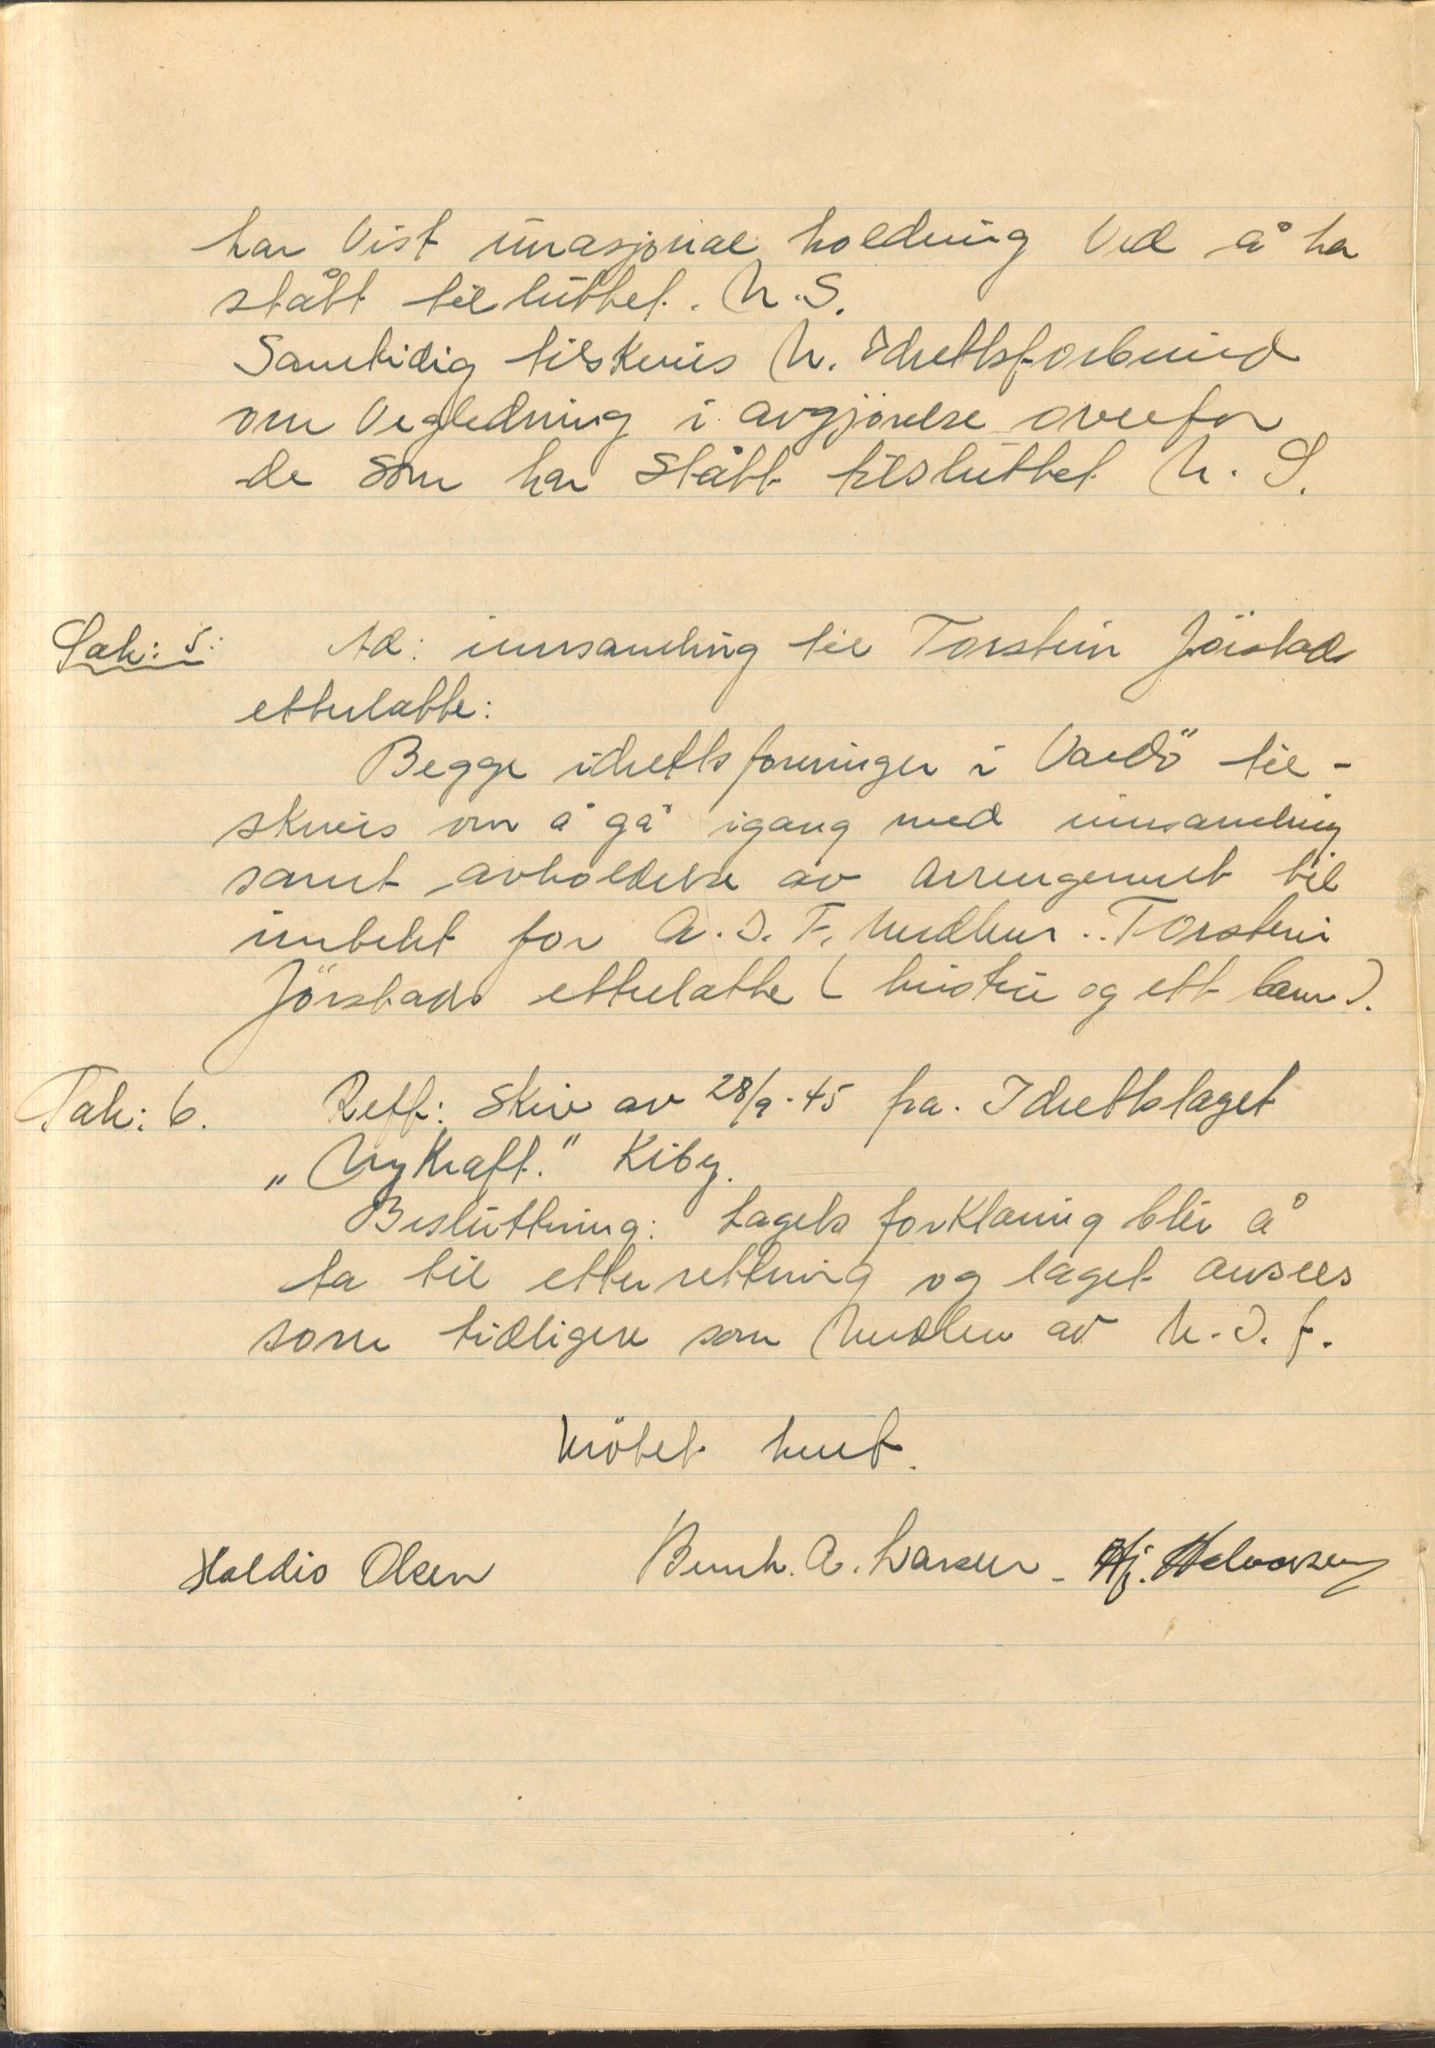 har Vist unasjonal holdning Ved å ha
stått tilsluttet. N.S.
Samtidig tilskrives N. Idrettsforbund
om Vegledning i avgjörelse overfor
de som har stått tilsluttet N. S.
Sak: 5: Ad: innsamling til Torstein Jörstads
etterlatte:
Begge idrettsforeninger i Vardö til-
skrives om å gå igang med innsamling
samt avholdelse av arrengement til
inntekt for A.I.F. Medlem. Torstein
Jörstads etterlatte ( hustru og ett barn ).
Sak: 6. Reff: Skriv av 28/9-45 fra. Idrettslaget
„Nykraft." Kiby.
Besluttning: Lagets forklaring blir å
ta til etterrettning og laget ansees
som tidligere som Medlem av N.I.F.
Mötet hevet.
Haldis Olsen Bernh. A. Larsen - Hj. Halvorsen